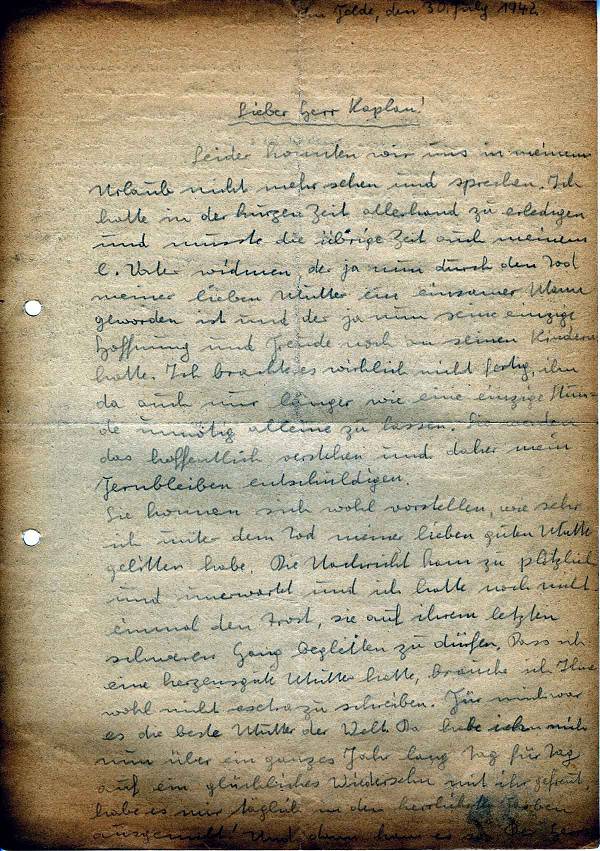 Im Felde, den 30. July 1942
Lieber Herr Kaplan!
Leider konnten wir uns in meinem
Urlaub nicht mehr sehen und sprechen. Ich
hatte in der kurzen Zeit allerhand zu erledigen
und musste die übrige Zeit auch meinem
l. Vater widmen, der ja nun durch den Tod
meiner lieben Mutter ein einsamer Mann
geworden ist und der ja nun seine einzige
Hoffnung und Freude noch an seinen Kindern
hatte. Ich brachte es wirklich nicht fertig, ihn
da auch nur länger wie eine einzige Stun-
de unnötig alleine zu lassen. Sie werden
das hoffentlich verstehen und daher mein
Fernbleiben entschuldigen.
Sie können sich wohl vorstellen, wie sehr
ich unter dem Tod meiner lieben guten Mutter
gelitten habe. Die Nachricht kam zu plötzlich
und unerwartet und ich hatte noch nicht
einmal den Trost, sie auf ihrem letzten
schweren Gang begleiten zu dürfen. Dass ich
eine herzensgute Mutter hatte, brauche ich Ihnen
wohl nicht extra zu schreiben. Für mich war
es die beste Mutter der Welt. Da habe ich mich
nun über ein ganzes Jahr lang Tag für Tag
auf ein glückliches Wiedersehn mit ihr gefreut,
habe es mir täglich in den herrlichsten Farben
ausgemalt! Und dann kam es so. Der